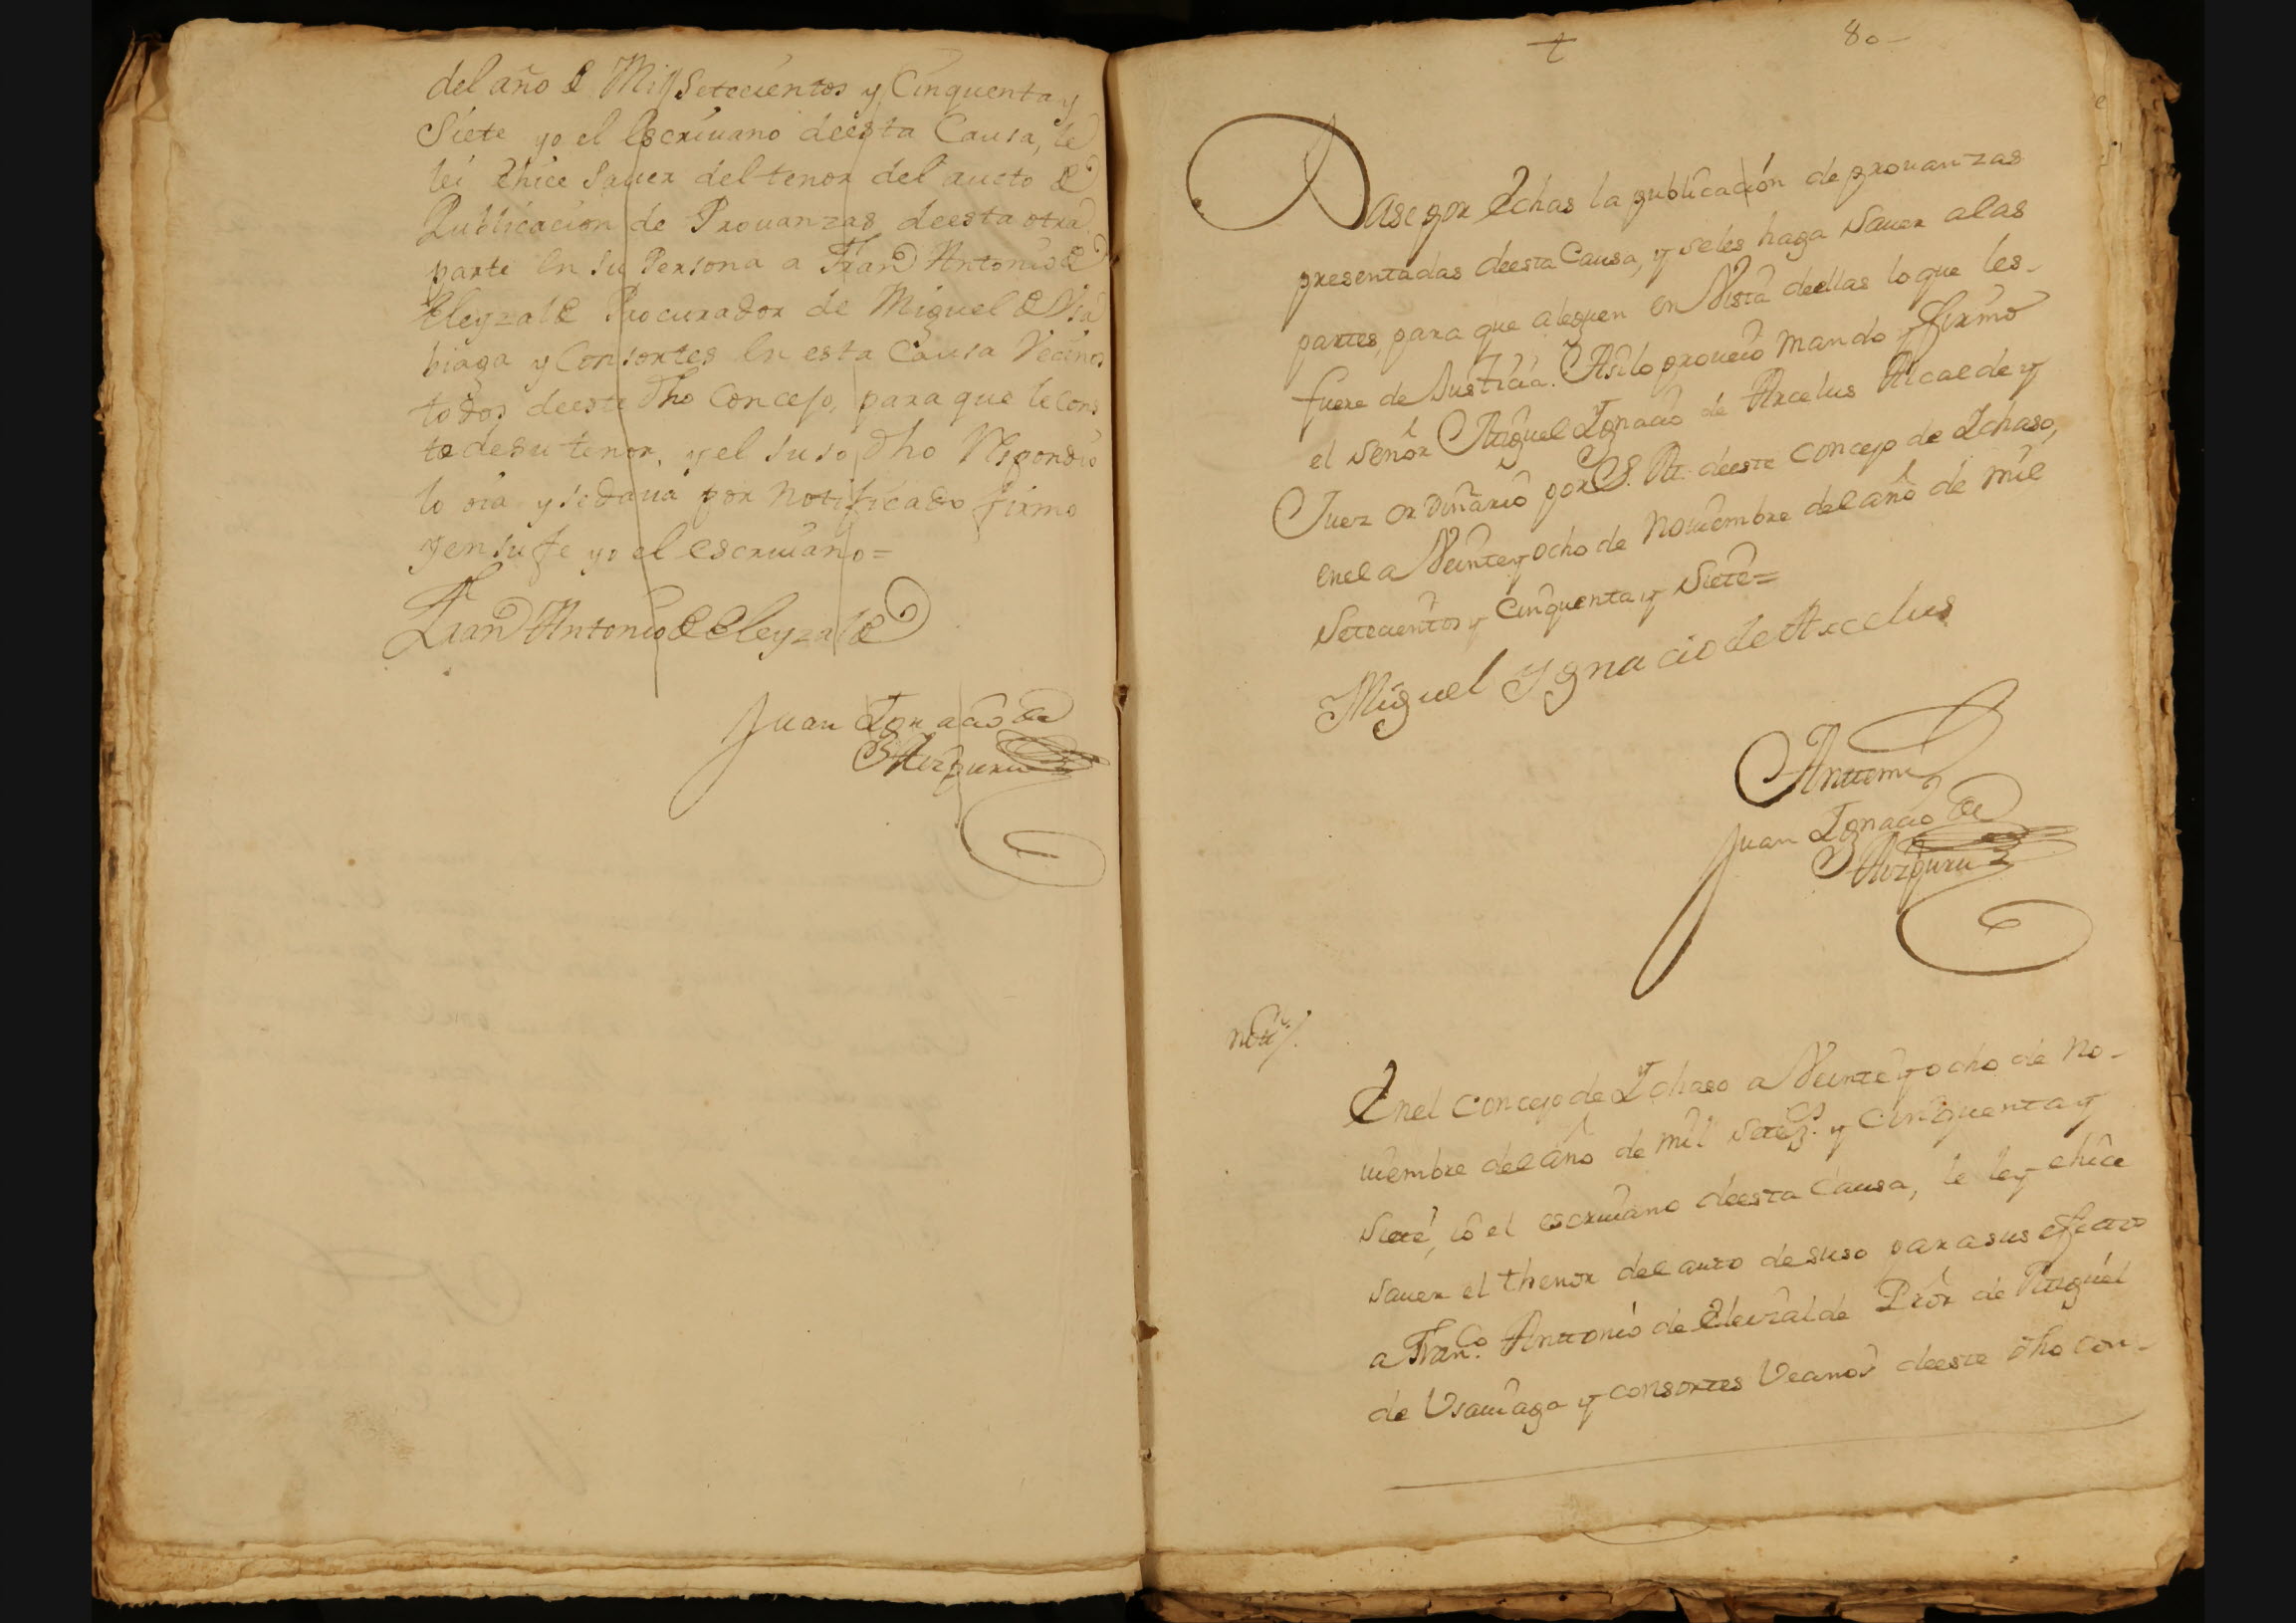 del año de Mill Setecientos y Cinquenta y
Siete yo el Escriuano deesta Causa, le
lei Ehice Sauer del tenor del aucto de
Publicacion de Prouanzas deesta otra
parte En su Persona a Fran.co Antonio de
Eleyzalde Procurador de Miguel de Vsa
biaga y Consortes En esta Causa Vecinos
todos deeste dho Concejo, para que le Cons
te desu tenor, y el suso dho Respondio
lo oia y sedaua por notificado firmo
y en su fe yo el escriuano =
Fran.co Antonio de Eleyzalde
Juan Ignacio de
Aizpuru
80
Dase por Echas la publicacion de prouanzas
presentadas deesta Causa, y seles haga Sauer alas
partes, para que aleguen en Vista deellas lo que les
fuere de Justicia. Asilo proueio mando y firmo
el Señor Miguel Ignacio de Arcelus Alcalde y
Juez ordinario por S. M. deeste Concejo de Ichaso,
enel a Veinte y ocho de Nouiembre del año de mil
Setecientos y Cinquenta y Siete =
Miguel Ygnacio de Arcelus
Antemi
Juan Ignacio de
Aizpuru
Nott.n
Enel Concejo de Ychaso a Veinte y ocho de No-
uiembre del año de mil Setez.os y Cinquenta y
Siete, io el escriuano deesta Causa, le ley ehice
Sauer el thenor del auto desuso para sus efectos
a Fran.co Anttonio de Eleizalde Pror de Miguel
de Vsauiaga y consortes Vecinos deeste dho Con-